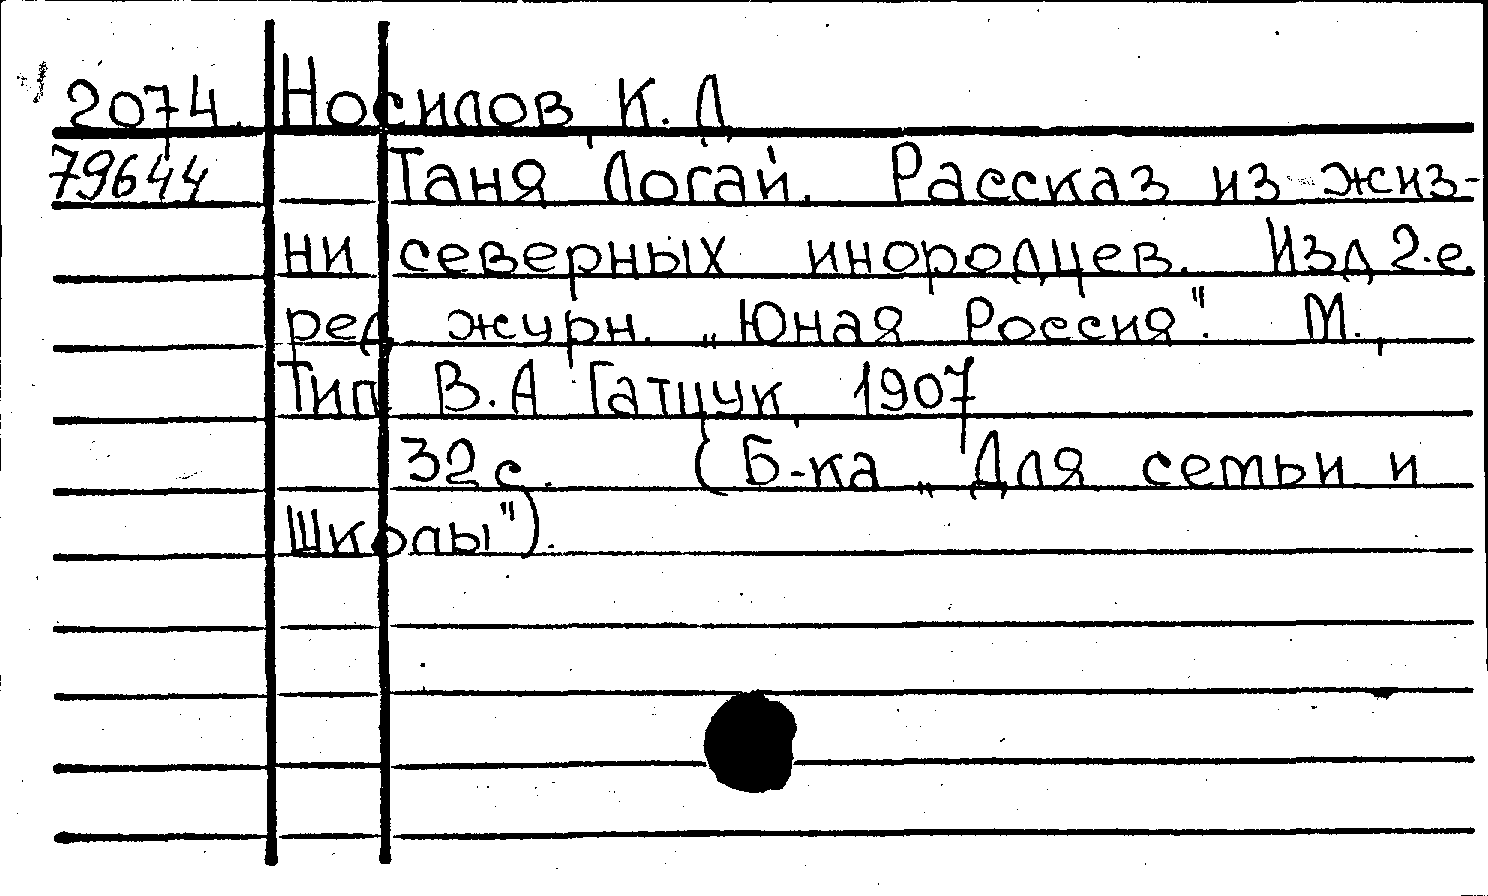 2074. Носилов, К. Д.
79644 Таня Логай. Рассказ из жиз-
ни северных инородцев. Изд 2-е.
ред журн. „Юная Россия". М.,
Тип В.А Гатцук, 1907
32 с. (Б-ка „Для семьи и
Школы").